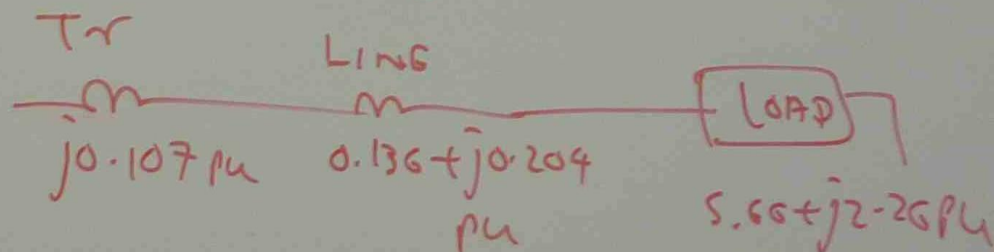 Tr
LINE
LOAD
j0.107 pu
0.136+j0.204
pu
5.66+j2.26 pu